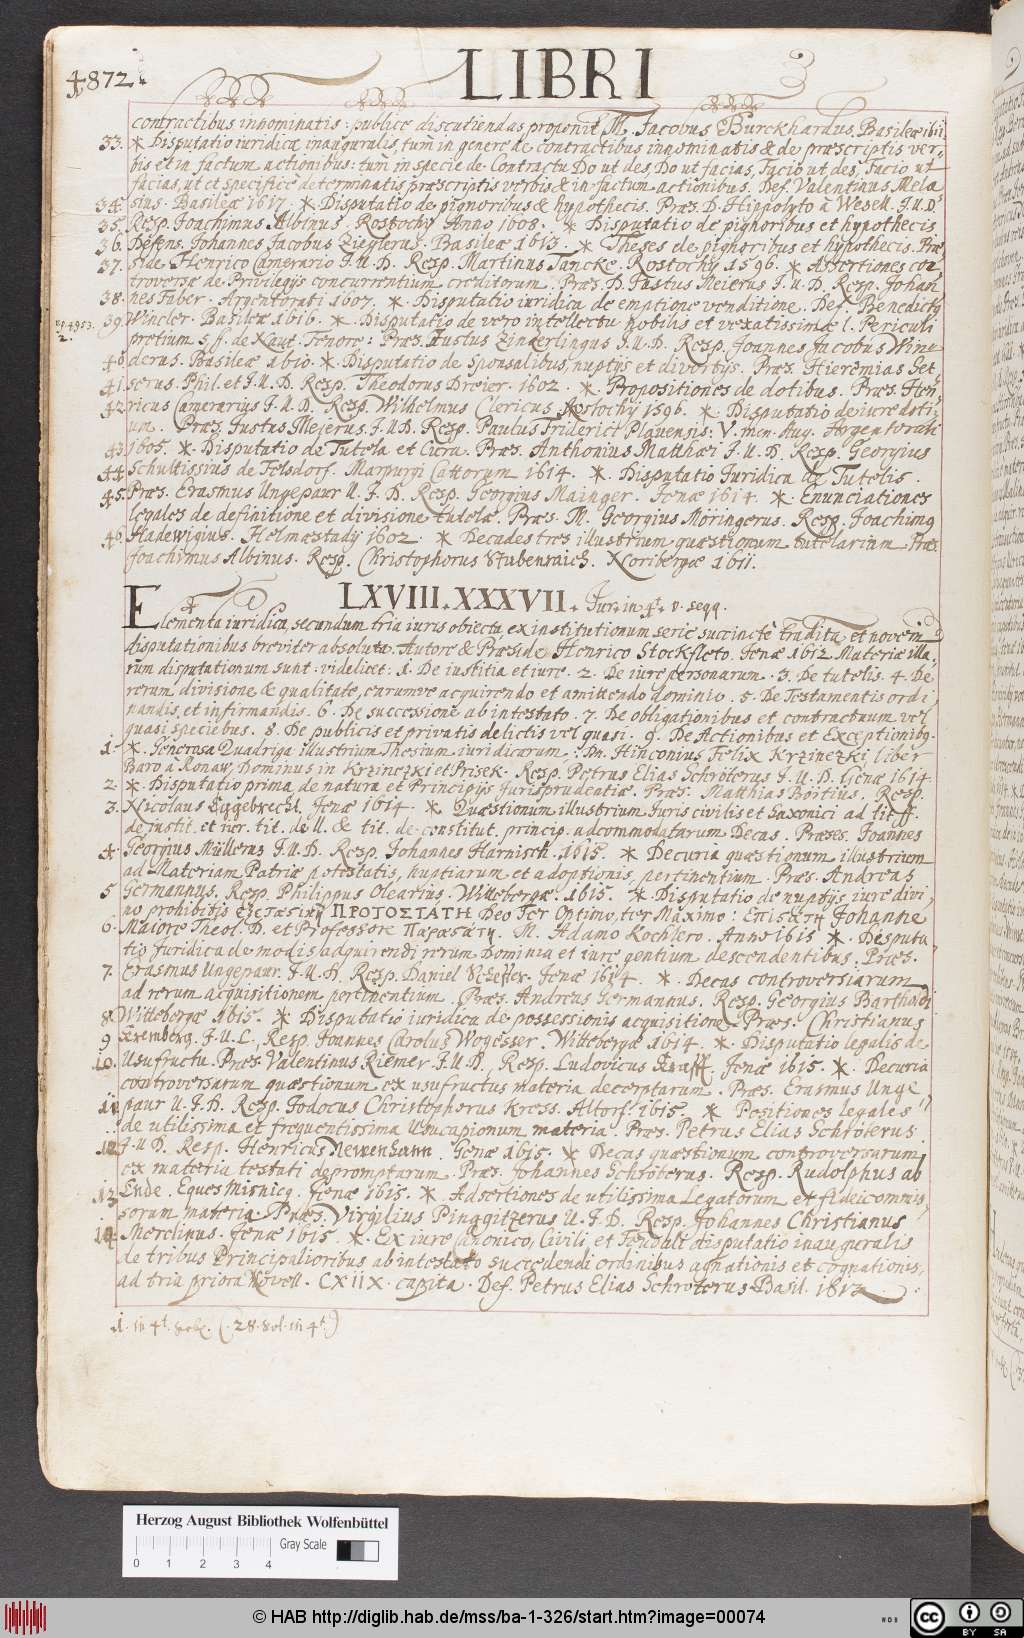 4872.
LIBRI
contractibus innominatis: publice discutiendas proponit M. Jacobus Burckhardus. Basileæ 1611
33. * Disputatio iuridica inauguralis, tum in genere de contractibus innominatis & de præscriptis ver-
bis et in factum actionibus: tum in specie de Contractu Do ut des, Do ut facias, Facio ut des, Facio ut
facias, ut et specificè determinatis præscriptis verbis & in factum actionibus. Def. Valentinus Mela
34. sius. Basileæ 1617. * Disputatio de pignoribus & hypothecis. Præs. D. Hippolyto à Wesell. J.U.D.
35. Resp. Joachimus Albinus. Rostochij Anno 1608. * Disputatio de pignoribus et hypothecis
36. Defens. Johannes Jacobus Zieglerus. Basileæ 1613. * Theses de pignoribus et hypothecis. Præ
37. side Henrico Camerario J.U.D. Resp. Martinus Tancke. Rostochij 1596. * Assertiones con
troversæ de Privilegijs concurrentium creditorum. Præs. D. Justus Meierus J.U.D. Resp. Johan
38. nes Faber. Argentorati 1607. * Disputatio iuridica de emptione venditione. Def. Benedictus
39. Wincler. Basileæ 1616. * Disputatio de vero intellectu nobilis et vexatissimæ l. Periculi
pretium 5. ff. de Naut. Fenore: Præs. Justus Zinzerlingus J.U.D. Resp. Joannes Jacobus Win-
40. derus. Basileæ 1610 * Disputatio de Sponsalibus, nuptijs et divortijs. Præs. Hieremias Set,
41. serus. Phil. et J.U.D. Resp. Theodorus Dreier. 1602. * Propositiones de dotibus. Præs. Hen,
42. ricus Camerarius J.U.D. Resp. Wilhelmus Clericus Rostochij 1596. * Disputatio de iure doti
um. Præs. Justus Meierus. J.U.D. Resp. Paulus Friderici Plavensis: V. men. Aug. Argentorati
43. 1605. * Disputatio de Tutela et Cura. Præs. Anthonius Matthæi J.U.D. Resp. Georgius
44. Schultissius de Felsdorf. Marpurgi Cattorum 1614. * Disputatio Juridica de Tutelis.
45. Præs. Erasmus Ungepaur U.J.D. Resp. Georgius Mainger. Jenæ 1614. * Enunciationes
legales de definitione et divisione tutelæ. Præs. M. Georgius Möringerus. Resp. Joachimus
46. Hadewigius. Helmæstadij 1602. * Decades tres illustrium quæstionum tutelarium Præs.
Joachimus Albinus. Resp. Christophorus Stubenrauch. Noribergæ 1611.
LXVIII. XXXVII. Jur. in 4t. v. seqq.
Elementa iuridica, secundum tria iuris obiecta, ex institutionum serie succinctè tradita, et novem
disputationibus breviter absoluta. Autore & Præside Henrico Stockfleto. Jenæ 1612. Materiæ illa,
rum disputationum sunt: videlicet: 1. De iustitia et iure. 2. De iure personarum. 3. De tutelis. 4. De
rerum divisione & qualitate, earumve acquirendo et amittendo dominio. 5. De Testamentis ordi,
nandis, et infirmandis. 6. De successione ab intestato. 7. De obligationibus et contractuum vel
quasi speciebus. 8. De publicis et privatis delictis vel quasi. 9. De Actionibus et Exceptionibus.
1. * Generosa Quadriga illustrium Thesium iuridicarum; Dn. Hinconius Felix Krzinezki, liber
Baro à Ronaw, Dominus in Krzineczki et Prisek. Resp. Petrus Elias Schröterus J.U.D. Genæ 1614.
2. * Disputatio prima de natura et Principijs Jurisprudentiæ. Præs. Matthias Bortius. Resp.
3. Nicolaus Eggebrecht. Jenæ 1614. * Quæstionum illustrium Juris civilis et Saxonici ad tit. ff.
de justit. et iur. tit. de ll. & tit. de constitut. princip. adcommodatarum Decas. Præses. Joannes
4. Georgius Müllerus J.U.D. Resp. Johannes Harnisch. 1615. * Decuria quæstionum illustrium
ad Materiam Patriæ potestatis, nuptiarum et adoptionis, pertinentium. Præs. Andreas
5. Germannus. Resp. Philippus Olearius. Wittebergæ. 1615. * Disputatio de nuptijs iure divi,
no prohibitis ΠΡΟΤΟΣΤΑΤΗ Deo Ter Optimo, ter Maximo: Johanne
6. Maiore Theol. D. et Professore M. Adamo Kochlero. Anno 1615 *. Disputa
tio Juridica de modis adquirendi rerum Dominia et iure gentium descendentibus. Præs.
7. Erasmus Ungepaur. J.U.D. Resp. Daniel Scheffer. Jenæ 1614. * Decas controversiarum
ad rerum acquisitionem pertinentium. Præs. Andreas Germannus. Resp. Georgius Bartholdi
8. Wittebergæ 1615. * Disputatio iuridica de possessionis acquisitione. Præs. Christianus
9. J.U.L. Resp. Joannes Carolus Wogesser. Wittebergæ 1614. * Disputatio legalis de
10. Usufructu. Præs. Valentinus Riemer J.U.D. Resp. Ludovicus Krafft. Jenæ 1615. * Decuria
controversarum quæstionum ex usufructus materia decerptarum. Præs. Erasmus Unge
11. paur U.J.D. Resp. Jodocus Christophorus Kress. Altorf. 1615. * Positiones legales
de utilissima et frequentissima Usucapionum materia. Præs. Petrus Elias Schröterus
12. J.U.D. Resp. Henricus Newenhann. Genæ 1615. * Decas quæstionum controversarum
ex materia testati depromptarum. Præs. Johannes Schröterus. Resp. Rudolphus ab
13. Ende. Eques Misnicus. Jenæ 1615. * Adsertiones de utilissima Legatorum et fideicommis,
sorum materia. Præs. Virgilius Pinggitzerus U.J.D. Resp. Johannes Christianus
14. Merclinus. Jenæ 1615. * Ex iure Canonico, Civili, et Feudali disputatio inauguralis
de tribus Principalioribus ab intestato succedendi ordinibus agnationis et cognationis,
ad tria priora Novell. CXIIX. capita. Def. Petrus Elias Schröterus. Basil. 1612.
1. in 4t. (28. Vol. in 4t.)
Herzog August Bibliothek Wolfenbüttel
Gray Scale
0 1 2 3 4
© HAB http://diglib.hab.de/mss/ba-1-326/start.htm?image=00074
cc BY SA